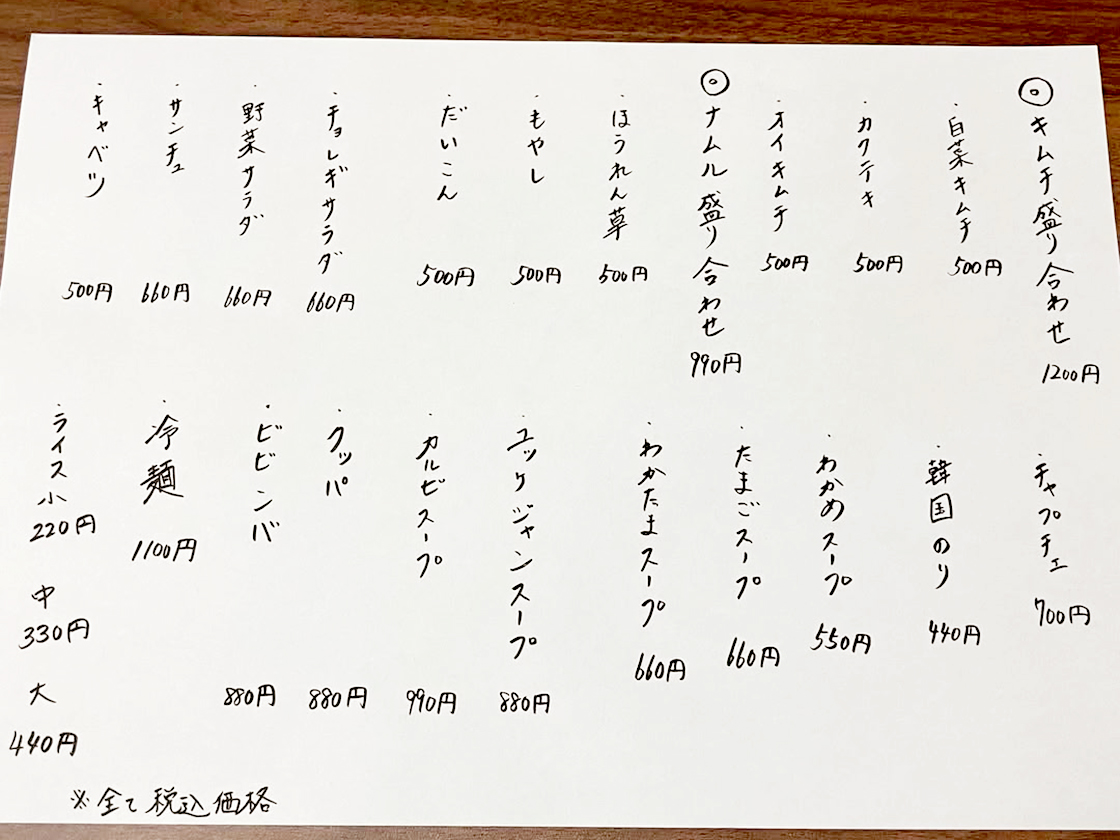 ◎キムチ盛り合わせ 1200円
・白菜キムチ 500円
・カクテキ 500円
・オイキムチ 500円
◎ナムル盛り合わせ 990円
・ほうれん草 500円
・もやし 500円
・だいこん 500円
・チョレギサラダ 660円
・野菜サラダ 660円
・サンチュ 660円
・キャベツ 500円
・チャプチェ 700円
・韓国のり 440円
・わかめスープ 550円
・たまごスープ 660円
・わかたまスープ 660円
・ユッケジャンスープ 880円
・カルビスープ 990円
・クッパ 880円
・ビビンバ 880円
・冷麺 1100円
・ライス小 220円
中 330円
大 440円
※全て税込価格